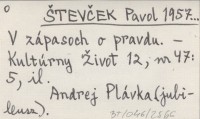 ŠTEVČEK Pavol 1957...
V zápasoch o pravdu. –
Kultúrny život 12, nr 47:
5, il.
Andrej Plávka (jubi-
leum).